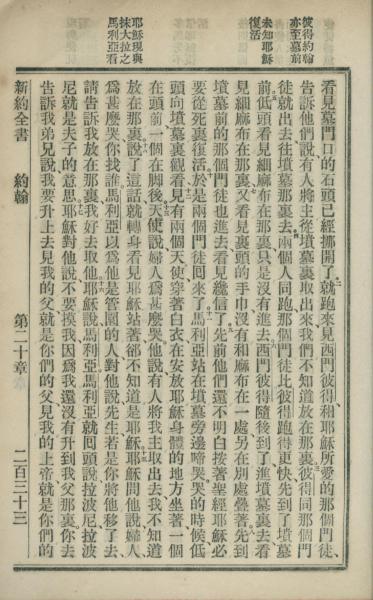 彼得約翰
亦至墓前
未知耶穌
復活
耶穌現與
抹大拉之
馬利亞看
看見墓門口的石頭已經挪開了就跑來見西門彼得和耶穌所愛的那個門徒
告訴他們說有人將主從墳墓裏取出來我們不知道放在那裏彼得同那個門
徒就出去往墳墓那裏去兩個人同跑那個門徒比彼得跑得更快先到了墳墓
前低頭看見細麻布在那裏只是沒有進去西門彼得隨後到了進墳墓裏去看
見細麻布在那裏又看見裏頭的手巾沒有和麻布在一處另在別處疊著先到
墳墓前的那個門徒也進去看見纔信了先前他們還不明白按著聖經耶穌必
要從死裏復活於是兩個門徒回來了馬利亞站在墳墓旁邊啼哭哭的時候低
頭向墳墓裏觀看見有兩個天使穿著白衣在安放耶穌身體的地方坐著一個
在頭前一個在脚後天使說婦人爲甚麽哭他說有人將我主取出去我不知道
放在那裏說了這話就轉身看見耶穌站著卻不知道是耶穌耶穌問他說婦人
爲甚麽哭你找誰馬利亞以爲他是管園的人對他說先生若是你將他移了去
請告訴我放在那裏我好去取他耶穌說馬利亞馬利亞就回頭說拉波尼拉波
尼就是夫子的意思耶穌對他說不要摸我因爲我還沒有升到我父那裏你去
告訴我弟兄說我要升上去見我的父就是你們的父見我的上帝就是你們的
新約全書 約翰 第二十章 二百三十三